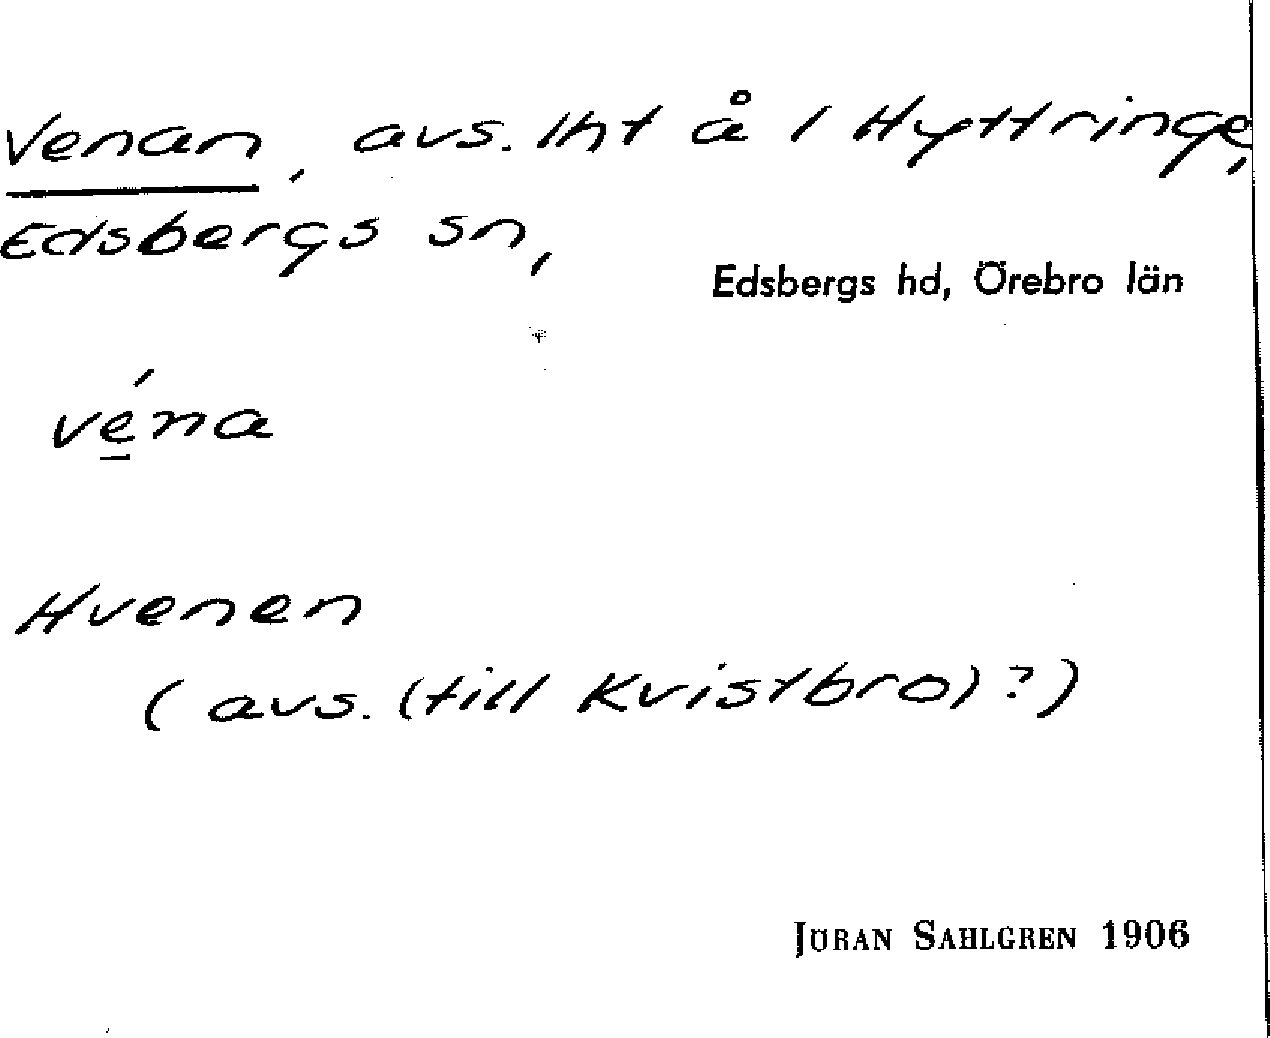 Venan, avs. lht å i Hyttringe,
Edsbergs sn,
Edsbergs hd, Örebro län
véna
Hvenen
( avs. (till Kvistbro) ? )
JÖRAN SAHLGREN 1906